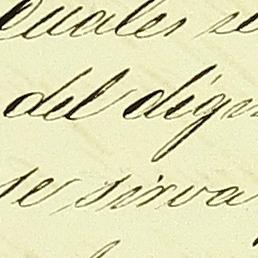 cuales se
del dign
se sirva